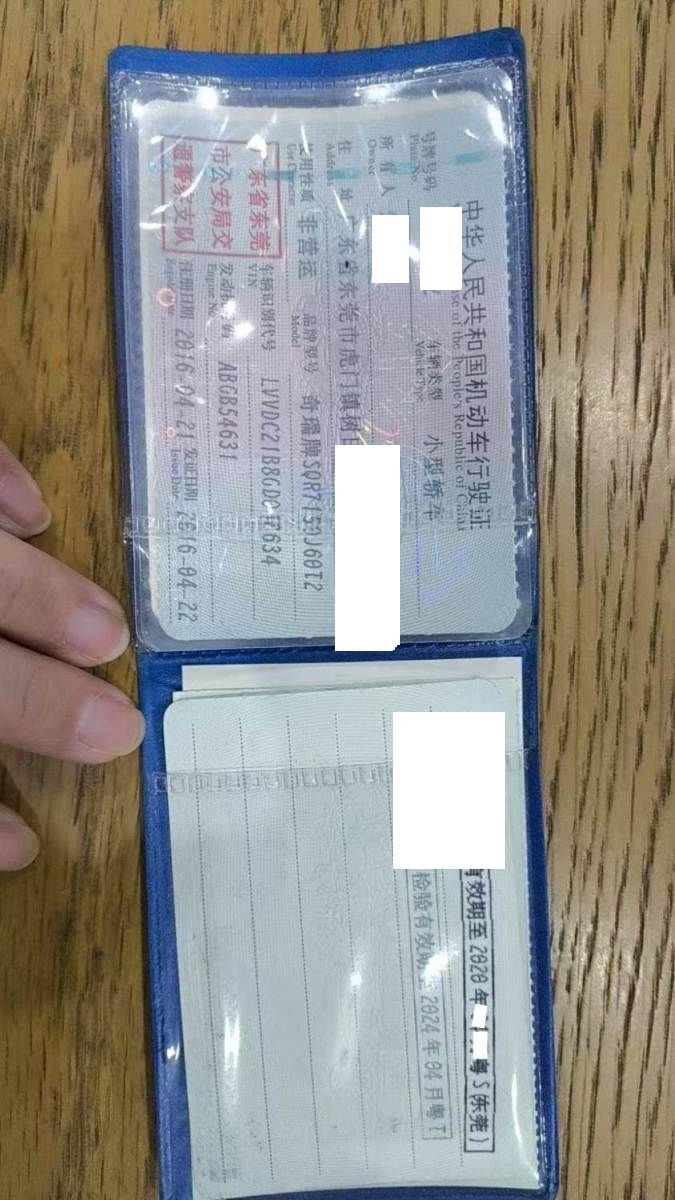 中华人民共和国机动车行驶证
se of the People's Republic of China
号牌号码
Plate No.
车辆类型 小型轿车
Vehicle Type
所有人
Owner
住址 广东省东莞市虎门镇
Address
使用性质 非营运 品牌型号 奇瑞牌
Use Character Model
东省东莞
市公安局交
通警察支队
车辆识别代号
VIN
发动机号码 ABGB54631
Engine No.
注册日期 2016-04-21 发证日期 2016-04-22
Issue Date
有效期至2020年 粤S(东莞)
检验有效期至2024年04月粤